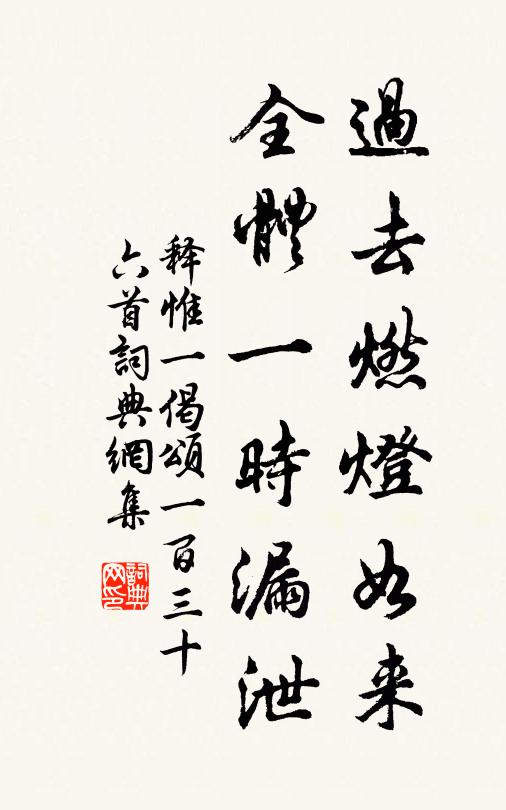 過去燃燈如来
全體一時漏泄
释惟一偈頌一百三十
六首詞典網集
詞典
网印